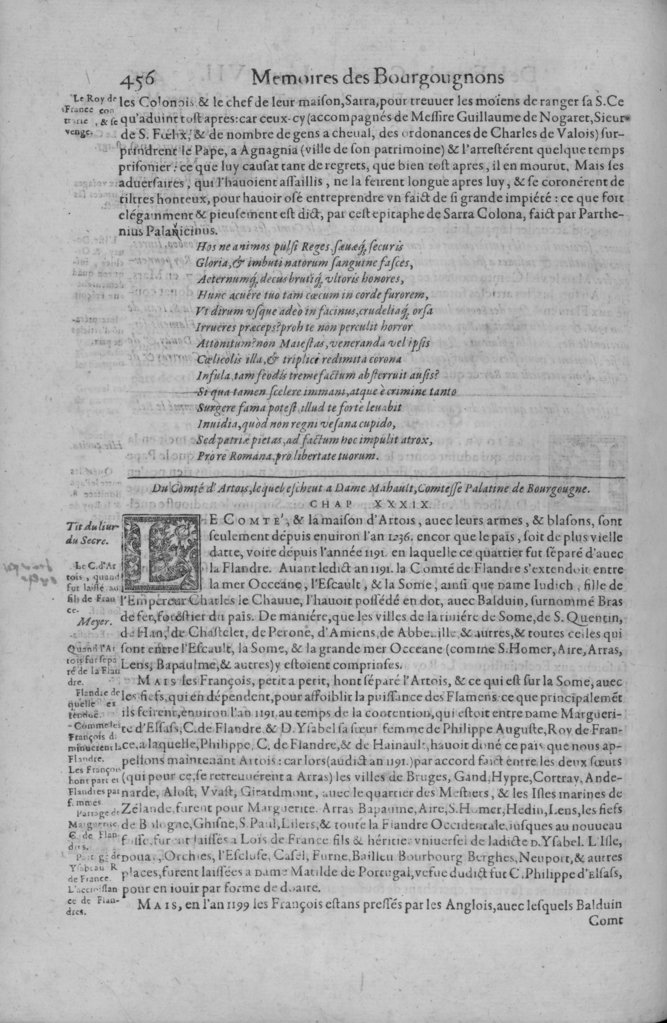 456 Memoires des Bourgougnons
Le Roy de
France con
traie, & se
venge.
les Colonois & le chef de leur maison, Sarra, pour treuuer les moiens de ranger sa S.Ce
qu'aduint tost aprés: car ceux-cy (accompagnés de Messire Guillaume de Nogaret, Sieur
de S. Fœlix, & de nombre de gens a cheual, des ordonances de Charles de Valois) sur-
prindrent le Pape, a Agnagnia (ville de son patrimoine) & l'arrestérent quelque temps
prisonier: ce que luy causat tant de regrets, que bien tost apres, il en mourut. Mais ses
aduersaires, qui l'hauoient assaillis, ne la feirent longue apres luy, & se coronérent de
tiltres honteux, pour hauoir osé entreprendre vn faict de si grande impiété: ce que fort
elégamment & pieusement est dict, par cest epitaphe de Sarra Colona, faict par Parthe-
nius Palanicinus.
Hos ne animos pulsi Reges, sæuæq́; securis
Gloria, & imbuti natorum sanguine fasces,
Aeternumq́; decus brutiq́; vltoris honores,
Hunc acuêre tuo tam cæcum in corde furorem,
Vt dirum vsque adeo in facinus, crudeliaq́; orsa
Irrueres præceps? proh te non perculit horror
Attonitum? non Maiestas, veneranda vel ipsis
Cœlicolis illa, & triplici redimita corona
Infula, tam fœdis tremefactum absterruit ausis?
Si qua tamen scelere immani, atque è crimine tanto
Surgere fama potest, illud te forte leuabit
Inuidia, quod non regni vesana cupido,
Sed patriæ pietas, ad factum hoc impulit atrox,
Pro re Romana, pro libertate tuorum.
Du Comté d'Artois, lequel escheut a Dame Mahault, Comtesse Palatine de Bourgougne.
CHAP XXXIX.
Tit du liur
du Secre.
LE COMTE', & la maison d'Artois, auec leurs armes, & blasons, sont
seulement dépuis enuiron l'an 1236. encor que le païs, soit de plus vielle
datte, voire dépuis l'année 1191. en laquelle ce quartier fut séparé d'auec
la Flandre. Auant ledict an 1191. la Comté de Flandre s'extendoit entre
la mer Occeane, l'Escault, & la Some, ainsi que Dame Iudich, fille de
l'Empereur Charles le Chauue, l'hauoit possédé en dot, auec Balduin, surnommé Bras
de fer, forestier du païs. De maniére, que les villes de la riuiére de Some, de S. Quentin,
de Han, de Chastelet, de Perone, d'Amiens, de Abbeuille & autres, & toutes celles qui
sont entre l'Escault, la Some, & la grande mer Occeane (comme S. Homer, Aire, Arras,
Lens, Bapaulme, & autres) y estoient comprinses.
Le C. d'Ar
tois, quand
fut laissé au
fils de Fran
ce.
Meyer.
Quand l'Ar
tois fut sepa
ré de la Flau
dre.
MAIS les François, petit a petit, hont séparé l'Artois, & ce qui est sur la Some, auec
les fiefs, qui en dépendent, pour affoiblir la puissance des Flamens: ce que principalemẽt
ils feirent, enuiron l'an 1191. au temps de la contention, qui estoit entre Dame Margueri-
te d'Elsass, C. de Flandre & D. Ysabel sa sœur femme de Philippe Auguste, Roy de Fran-
ce, a laquelle, Philippe, C. de Flandre, & de Hainault, hauoit doné ce païs que nous ap-
pellons maintenant Artois: car lors (audict an 1191.) par accord faict entre les deux sœurs
(qui pour ce, se retreuuérent a Arras) les villes de Bruges, Gand, Hypre, Cortray, Ande-
narde, Alost, Vvast, Girardmont, auec le quartier des Mestiers, & les Isles marines de
Zélande, furent pour Marguerite. Arras Bapaume, Aire, S. Homer, Hedin, Lens, les fiefs
de Bologne, Ghisne, S. Paul, Lilers, & toute la Flandre Occidentale, iusques au nouueau
fosse, furent laissés a Lois de France fils & héritier vniuersel de ladicte D. Ysabel. L'Isle,
Douay, Orchies, l'Escluse, Casel, Furne, Bailleu Bourbourg Berghes, Neuport, & autres
places, furent laissées a Dame Matilde de Portugal, vefue dudict fut C. Philippe d'Elsass,
pour en iouir par forme de doaire.
Flandre de
quelle estendue.
Comme les
François di
minuerent la
Flandre.
Les François
hont party es
Flandres par
femmes
Partage de
Marguerite
C. de Flan
dres.
Partage de
Ysabeau R
de France.
L'accroissan
ce de Flan-
dres.
MAIS, en l'an 1199 les François estans pressés par les Anglois, auec lesquels Balduin
Comt